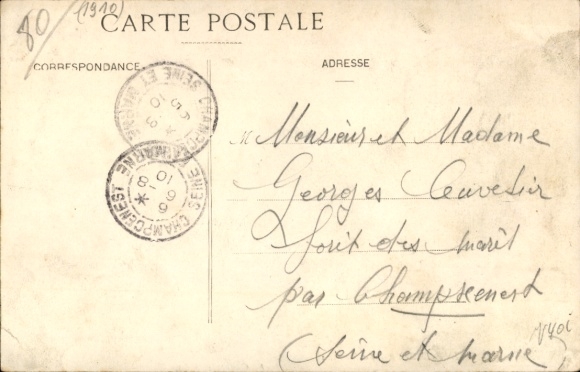 80
(1910)
CARTE POSTALE
CORRESPONDANCE
ADRESSE
CHAMPCENEST SEINE ET MARNE
CHAMPCENEST SEINE ET MARNE
Monsieur et Madame
Georges
forêt des
par Champcenest
(Seine et Marne)